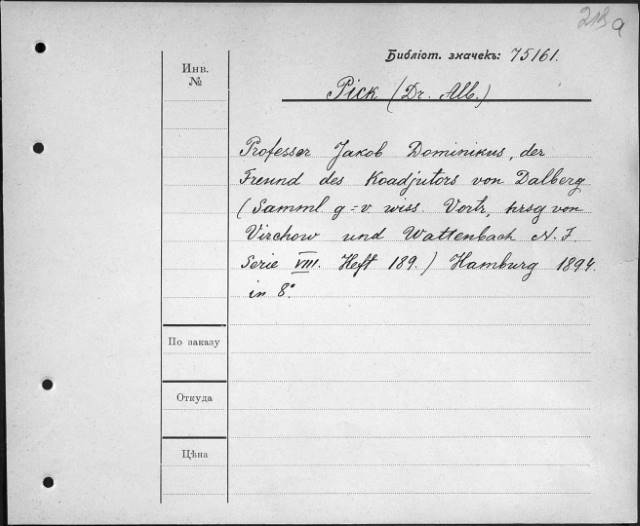 219a
Библіот. значекъ: 75161.
Инв.
№
Pick (Dr. Alb.)
Professor Jakob Dominikus, der
Freund des Koadjutors von Dalberg
(Samml g=v. wiss. Vortr, hrsg von
Virchow und Wattenbach N. F.
Serie VIII. Heft 189.) Hamburg 1894.
in 8°.
По заказу
Откуда
Цѣна